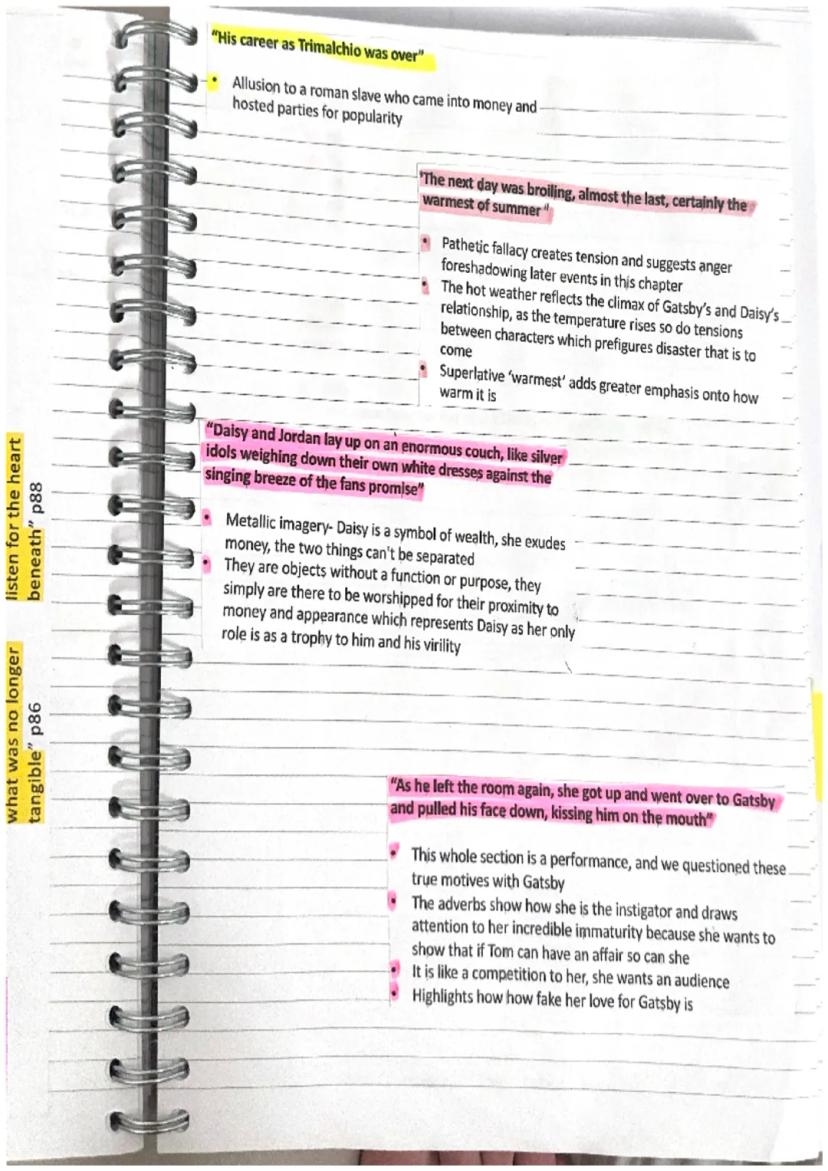 "His career as Trimalchio was over"
• Allusion to a roman slave who came into money and
hosted parties for popularity
'The next day was broiling, almost the last, certainly the
warmest of summer"
• Pathetic fallacy creates tension and suggests anger
foreshadowing later events in this chapter
• The hot weather reflects the climax of Gatsby's and Daisy's
relationship, as the temperature rises so do tensions
between characters which prefigures disaster that is to
come
• Superlative 'warmest' adds greater emphasis onto how
warm it is
"Daisy and Jordan lay up on an enormous couch, like silver
idols weighing down their own white dresses against the
singing breeze of the fans promise"
• Metallic imagery- Daisy is a symbol of wealth, she exudes
money, the two things can't be separated
• They are objects without a function or purpose, they
simply are there to be worshipped for their proximity to
money and appearance which represents Daisy as her only
role is as a trophy to him and his virility
"As he left the room again, she got up and went over to Gatsby
and pulled his face down, kissing him on the mouth"
• This whole section is a performance, and we questioned these
true motives with Gatsby
• The adverbs show how she is the instigator and draws
attention to her incredible immaturity because she wants to
show that if Tom can have an affair so can she
• It is like a competition to her, she wants an audience
• Highlights how how fake her love for Gatsby is
listen for the heart
beneath" p88
what was no longer
tangible" p86